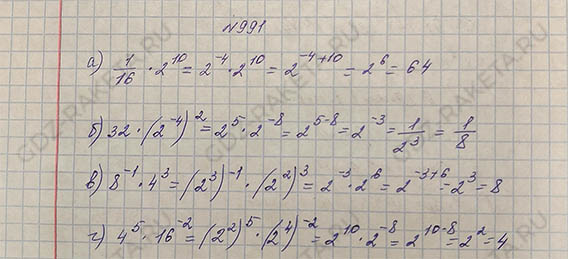 N991
а) 1/16 · 2^10 = 2^-4 · 2^10 = 2^-4+10 = 2^6 = 64
б) 32 · (2^-4)^2 = 2^5 · 2^-8 = 2^5-8 = 2^-3 = 1/2^3 = 1/8
в) 8^-1 · 4^3 = (2^3)^-1 · (2^2)^3 = 2^-3 · 2^6 = 2^-3+6 = 2^3 = 8
г) 4^5 · 16^-2 = (2^2)^5 · (2^4)^-2 = 2^10 · 2^-8 = 2^10-8 = 2^2 = 4
GDZ-RAKETA.RU